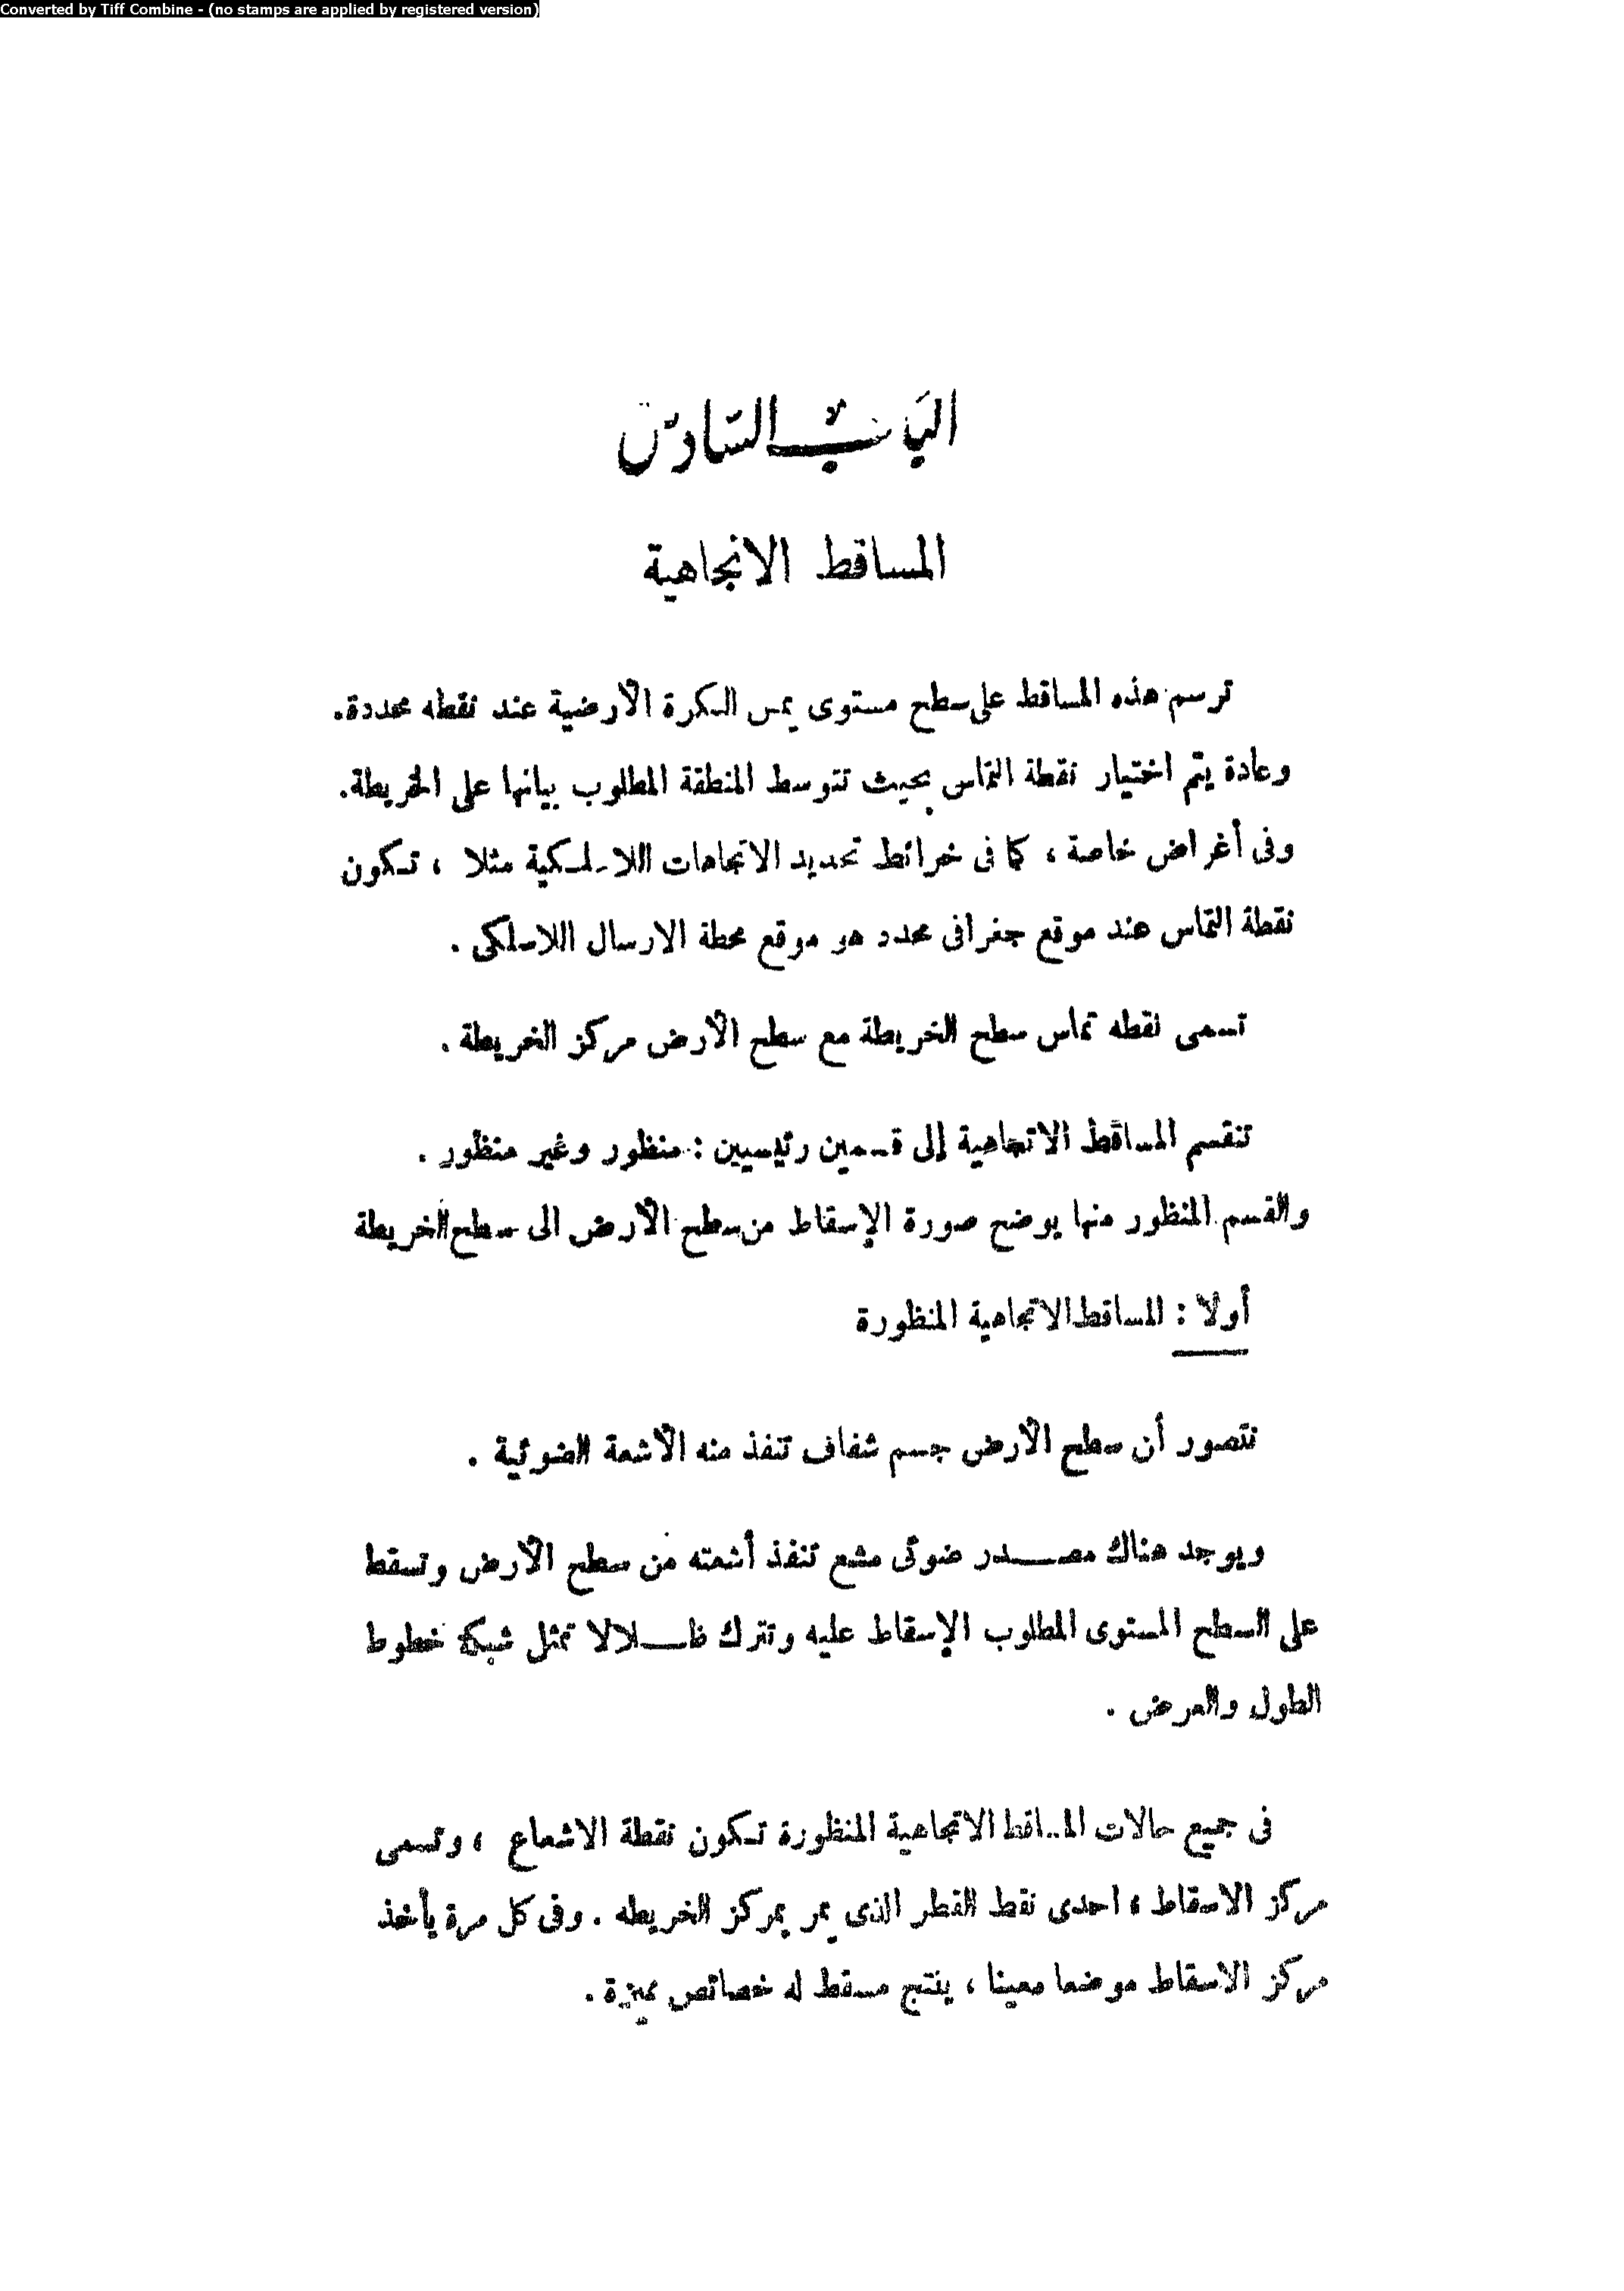 Converted by Tiff Combine - (no stamps are applied by registered version)
الباب السادس
المساقط الاتجاهية
ترسم هذه المساقط على سطح مستوى يمس الكرة الأرضية عند نقطه محددة.
وعادة يتم اختيار نقطة التماس بحيث تتوسط المنطقة المطلوب بيانها على الخريطة.
وفى أغراض خاصة ، كما فى خرائط تحديد الاتجاهات اللاسلكية مثلا ، تكون
نقطة التماس عند موقع جغرافى محدد هو موقع محطة الارسال اللاسلكى .
تسمى نقطه تماس سطح الخريطة مع سطح الأرض مركز الخريطة .
تنقسم المساقط الاتجاهية إلى قسمين رئيسيين : منظور وغير منظور .
والقسم المنظور منها يوضح صورة الإسقاط من سطح الأرض الى سطح الخريطة
أولا : المساقط الاتجاهية المنظورة
نتصور أن سطح الأرض جسم شفاف تنفذ منه الأشعة الضوئية .
ويوجد هناك مصدر ضوئى مشع تنفذ أشعته من سطح الأرض وتسقط
على السطح المستوى المطلوب الإسقاط عليه وتترك ظلالا تمثل شبكة خطوط
الطول والعرض .
فى جميع حالات المساقط الاتجاهية المنظورة تكون نقطة الاشعاع ، وتسمى
مركز الاسقاط ، احدى نقط القطر الذى يمر بمركز الخريطه . وفى كل مرة يأخذ
مركز الاسقاط موضعا معينا ، ينتج مسقط له خصائص مميزة .